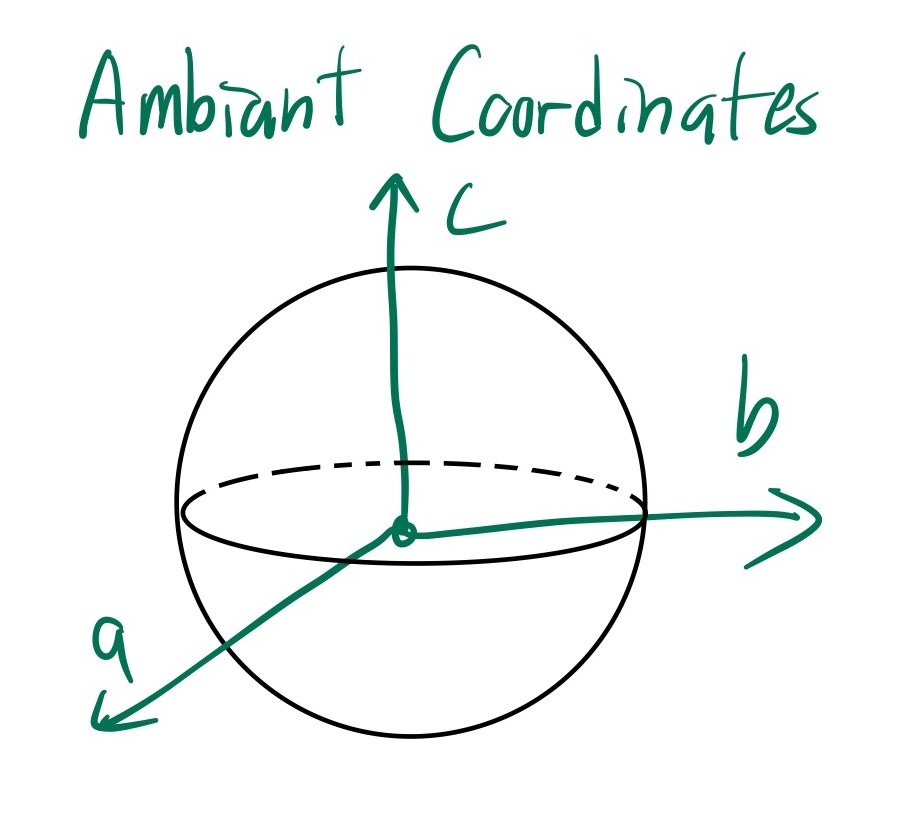 Ambiant Coordinates
c
b
a